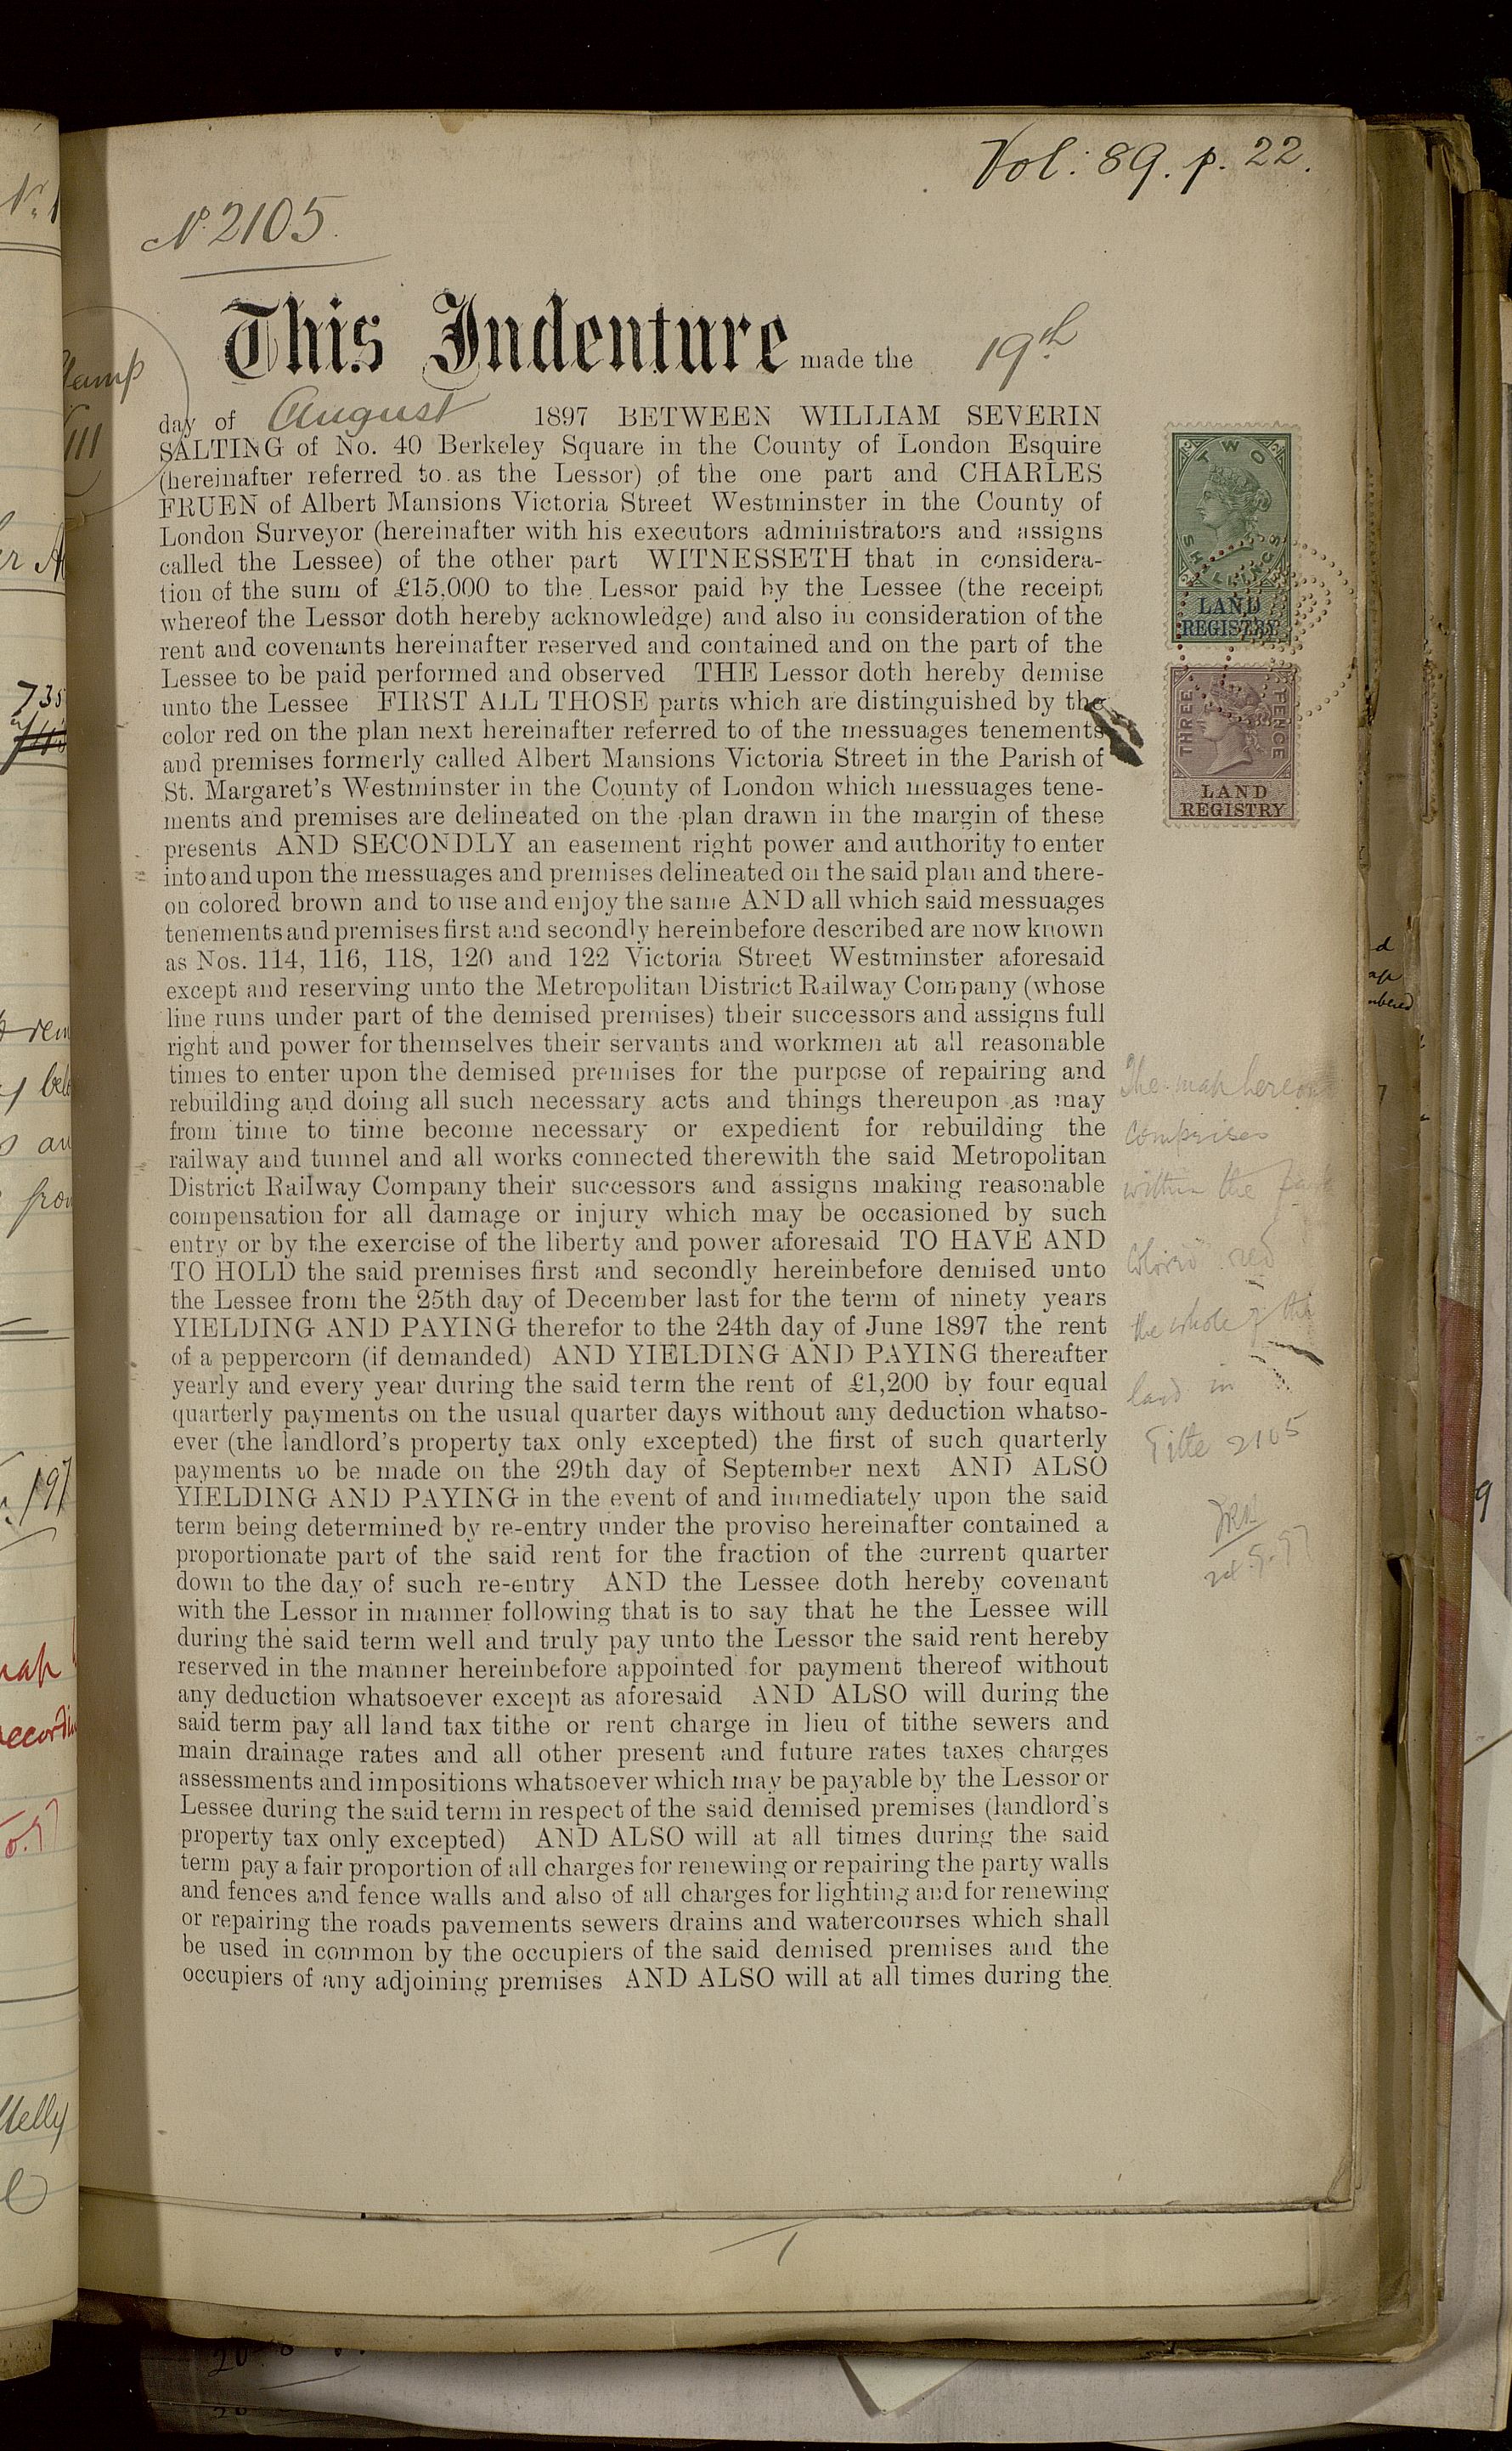 Vol: 89. p. 22.
No. 2105.
This Indenture made the 19th
day of August 1897 BETWEEN WILLIAM SEVERIN
SALTING of No. 40 Berkeley Square in the County of London Esquire
(hereinafter referred to as the Lessor) of the one part and CHARLES
FRUEN of Albert Mansions Victoria Street Westminster in the County of
London Surveyor (hereinafter with his executors administrators and assigns
called the Lessee) of the other part WITNESSETH that in considera-
tion of the sum of £15,000 to the Lessor paid by the Lessee (the receipt
whereof the Lessor doth hereby acknowledge) and also in consideration of the
rent and covenants hereinafter reserved and contained and on the part of the
Lessee to be paid performed and observed THE Lessor doth hereby demise
unto the Lessee FIRST ALL THOSE parts which are distinguished by the
color red on the plan next hereinafter referred to of the messuages tenements
and premises formerly called Albert Mansions Victoria Street in the Parish of
St. Margaret's Westminster in the County of London which messuages tene-
ments and premises are delineated on the plan drawn in the margin of these
presents AND SECONDLY an easement right power and authority to enter
into and upon the messuages and premises delineated on the said plan and there-
on colored brown and to use and enjoy the same AND all which said messuages
tenements and premises first and secondly hereinbefore described are now known
as Nos. 114, 116, 118, 120 and 122 Victoria Street Westminster aforesaid
except and reserving unto the Metropolitan District Railway Company (whose
line runs under part of the demised premises) their successors and assigns full
right and power for themselves their servants and workmen at all reasonable
times to enter upon the demised premises for the purpose of repairing and
rebuilding and doing all such necessary acts and things thereupon as may
from time to time become necessary or expedient for rebuilding the
railway and tunnel and all works connected therewith the said Metropolitan
District Railway Company their successors and assigns making reasonable
compensation for all damage or injury which may be occasioned by such
entry or by the exercise of the liberty and power aforesaid TO HAVE AND
TO HOLD the said premises first and secondly hereinbefore demised unto
the Lessee from the 25th day of December last for the term of ninety years
YIELDING AND PAYING therefor to the 24th day of June 1897 the rent
of a peppercorn (if demanded) AND YIELDING AND PAYING thereafter
yearly and every year during the said term the rent of £1,200 by four equal
quarterly payments on the usual quarter days without any deduction whatso-
ever (the landlord's property tax only excepted) the first of such quarterly
payments to be made on the 29th day of September next AND ALSO
YIELDING AND PAYING in the event of and immediately upon the said
term being determined by re-entry under the proviso hereinafter contained a
proportionate part of the said rent for the fraction of the current quarter
down to the day of such re-entry AND the Lessee doth hereby covenant
with the Lessor in manner following that is to say that he the Lessee will
during the said term well and truly pay unto the Lessor the said rent hereby
reserved in the manner hereinbefore appointed for payment thereof without
any deduction whatsoever except as aforesaid AND ALSO will during the
said term pay all land tax tithe or rent charge in lieu of tithe sewers and
main drainage rates and all other present and future rates taxes charges
assessments and impositions whatsoever which may be payable by the Lessor or
Lessee during the said term in respect of the said demised premises (landlord's
property tax only excepted) AND ALSO will at all times during the said
term pay a fair proportion of all charges for renewing or repairing the party walls
and fences and fence walls and also of all charges for lighting and for renewing
or repairing the roads pavements sewers drains and watercourses which shall
be used in common by the occupiers of the said demised premises and the
occupiers of any adjoining premises AND ALSO will at all times during the
TWO
SHILLINGS
LAND
REGISTRY
THREE PENCE
LAND
REGISTRY
The map hereon
comprises
within the part
colored red
the whole of the
land in
Title 2105